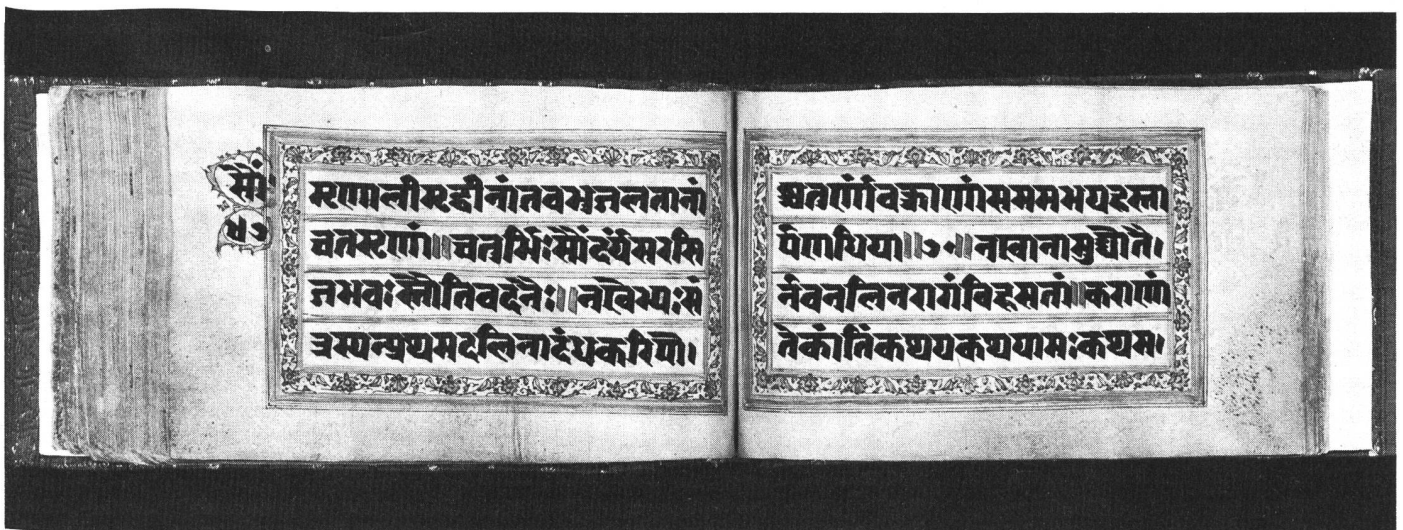 सौं
५७
मृणालीमृद्वीनांतवभुजलतानां
चतसृणां॥चतुर्भिःसौंदर्यंसरसि
जभवःस्तौतिवदनैः॥नखेभ्यःसं
त्रस्यन्प्रथमदलिनादंधकरिपो।
श्चतुर्णांवक्त्राणांसममभयहस्ता
र्पणधिया॥७०॥नखानामुद्योतै।
र्नवनलिनरागंविहसतां॥कराणां
तेकांतिंकथयकथयामःकथम।